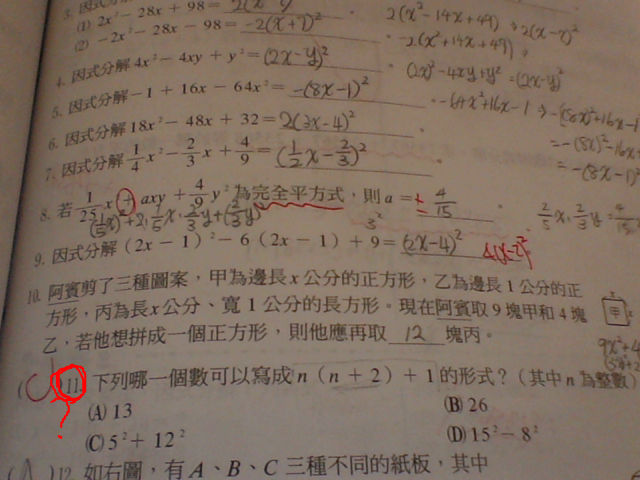 3. 因式分
(1) 2x² − 28x + 98 =
2(x² − 14x + 49) ⇒ 2(x−7)²
(2) −2x² − 28x − 98 = −2(x+7)²
−2(x²+14x+49)
4. 因式分解 4x² − 4xy + y² = (2x−y)²
(2x)²−4xy+y² = (2x−y)²
5. 因式分解 −1 + 16x − 64x² = −(8x−1)²
−64x²+16x−1 ⇒ −(8x)²+16x−1
= −(8x)²−16x
= −(8x−1)
6. 因式分解 18x² − 48x + 32 = 2(3x−4)²
7. 因式分解 1/4 x² − 2/3 x + 4/9 = (1/2 x − 2/3)²
8. 若 1/25 x + axy + 4/9 y² 為完全平方式，則 a = ± 4/15 。
(1/5 x)² + 2 · 1/5 x · 2/3 y + (2/3 y)²
9. 因式分解 (2x − 1)² − 6 (2x − 1) + 9 = (2x−4)²
4(x−2)²
10. 阿賓剪了三種圖案，甲為邊長 x 公分的正方形，乙為邊長 1 公分的正
方形，丙為長 x 公分、寬 1 公分的長方形。現在阿賓取 9 塊甲和 4 塊
乙，若他想拼成一個正方形，則他應再取 12 塊丙。
甲
9x²+4
( C ) 11. 下列哪一個數可以寫成 n（n + 2）+ 1 的形式？（其中 n 為整數）
?
(A) 13
(B) 26
(C) 5² + 12²
(D) 15² − 8²
(A) 12. 如右圖，有 A、B、C 三種不同的紙板，其中